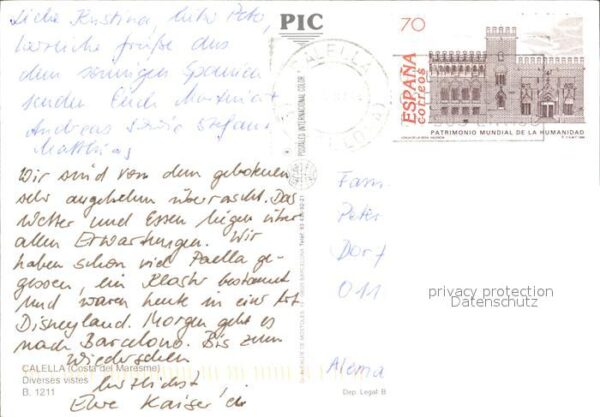 Liebe Kristina, lieber Peter,
herzliche Grüße aus
dem sonnigen Spanien
senden Euch
Andreas Stefanie
Matthias
Wir sind von dem gebotenen
sehr angenehm überrascht. Das
Wetter und Essen liegen über
allen Erwartungen. Wir
haben schon viel Paella ge-
gessen, ein Kloster bestaunt
und waren heute in einer Art
Disneyland. Morgen geht es
nach Barcelona. Bis zum
Wiedersehen
herzlichst
Kaiser
CALELLA (Costa del Maresme)
Diverses vistes
B. 1211
PIC
POSTALES INTERNACIONAL COLOR
BARCELONA
CALELLA
70
ESPAÑA
correos
PATRIMONIO MUNDIAL DE LA HUMANIDAD
Fam.
Peter
Dorf
011
Alema
privacy protection
Datenschutz
Dep. Legal: B